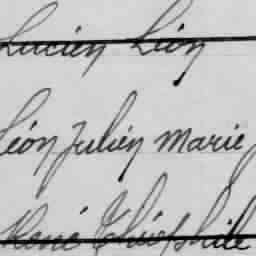 Lucien Léon
Léon Julien Marie
René Théophile